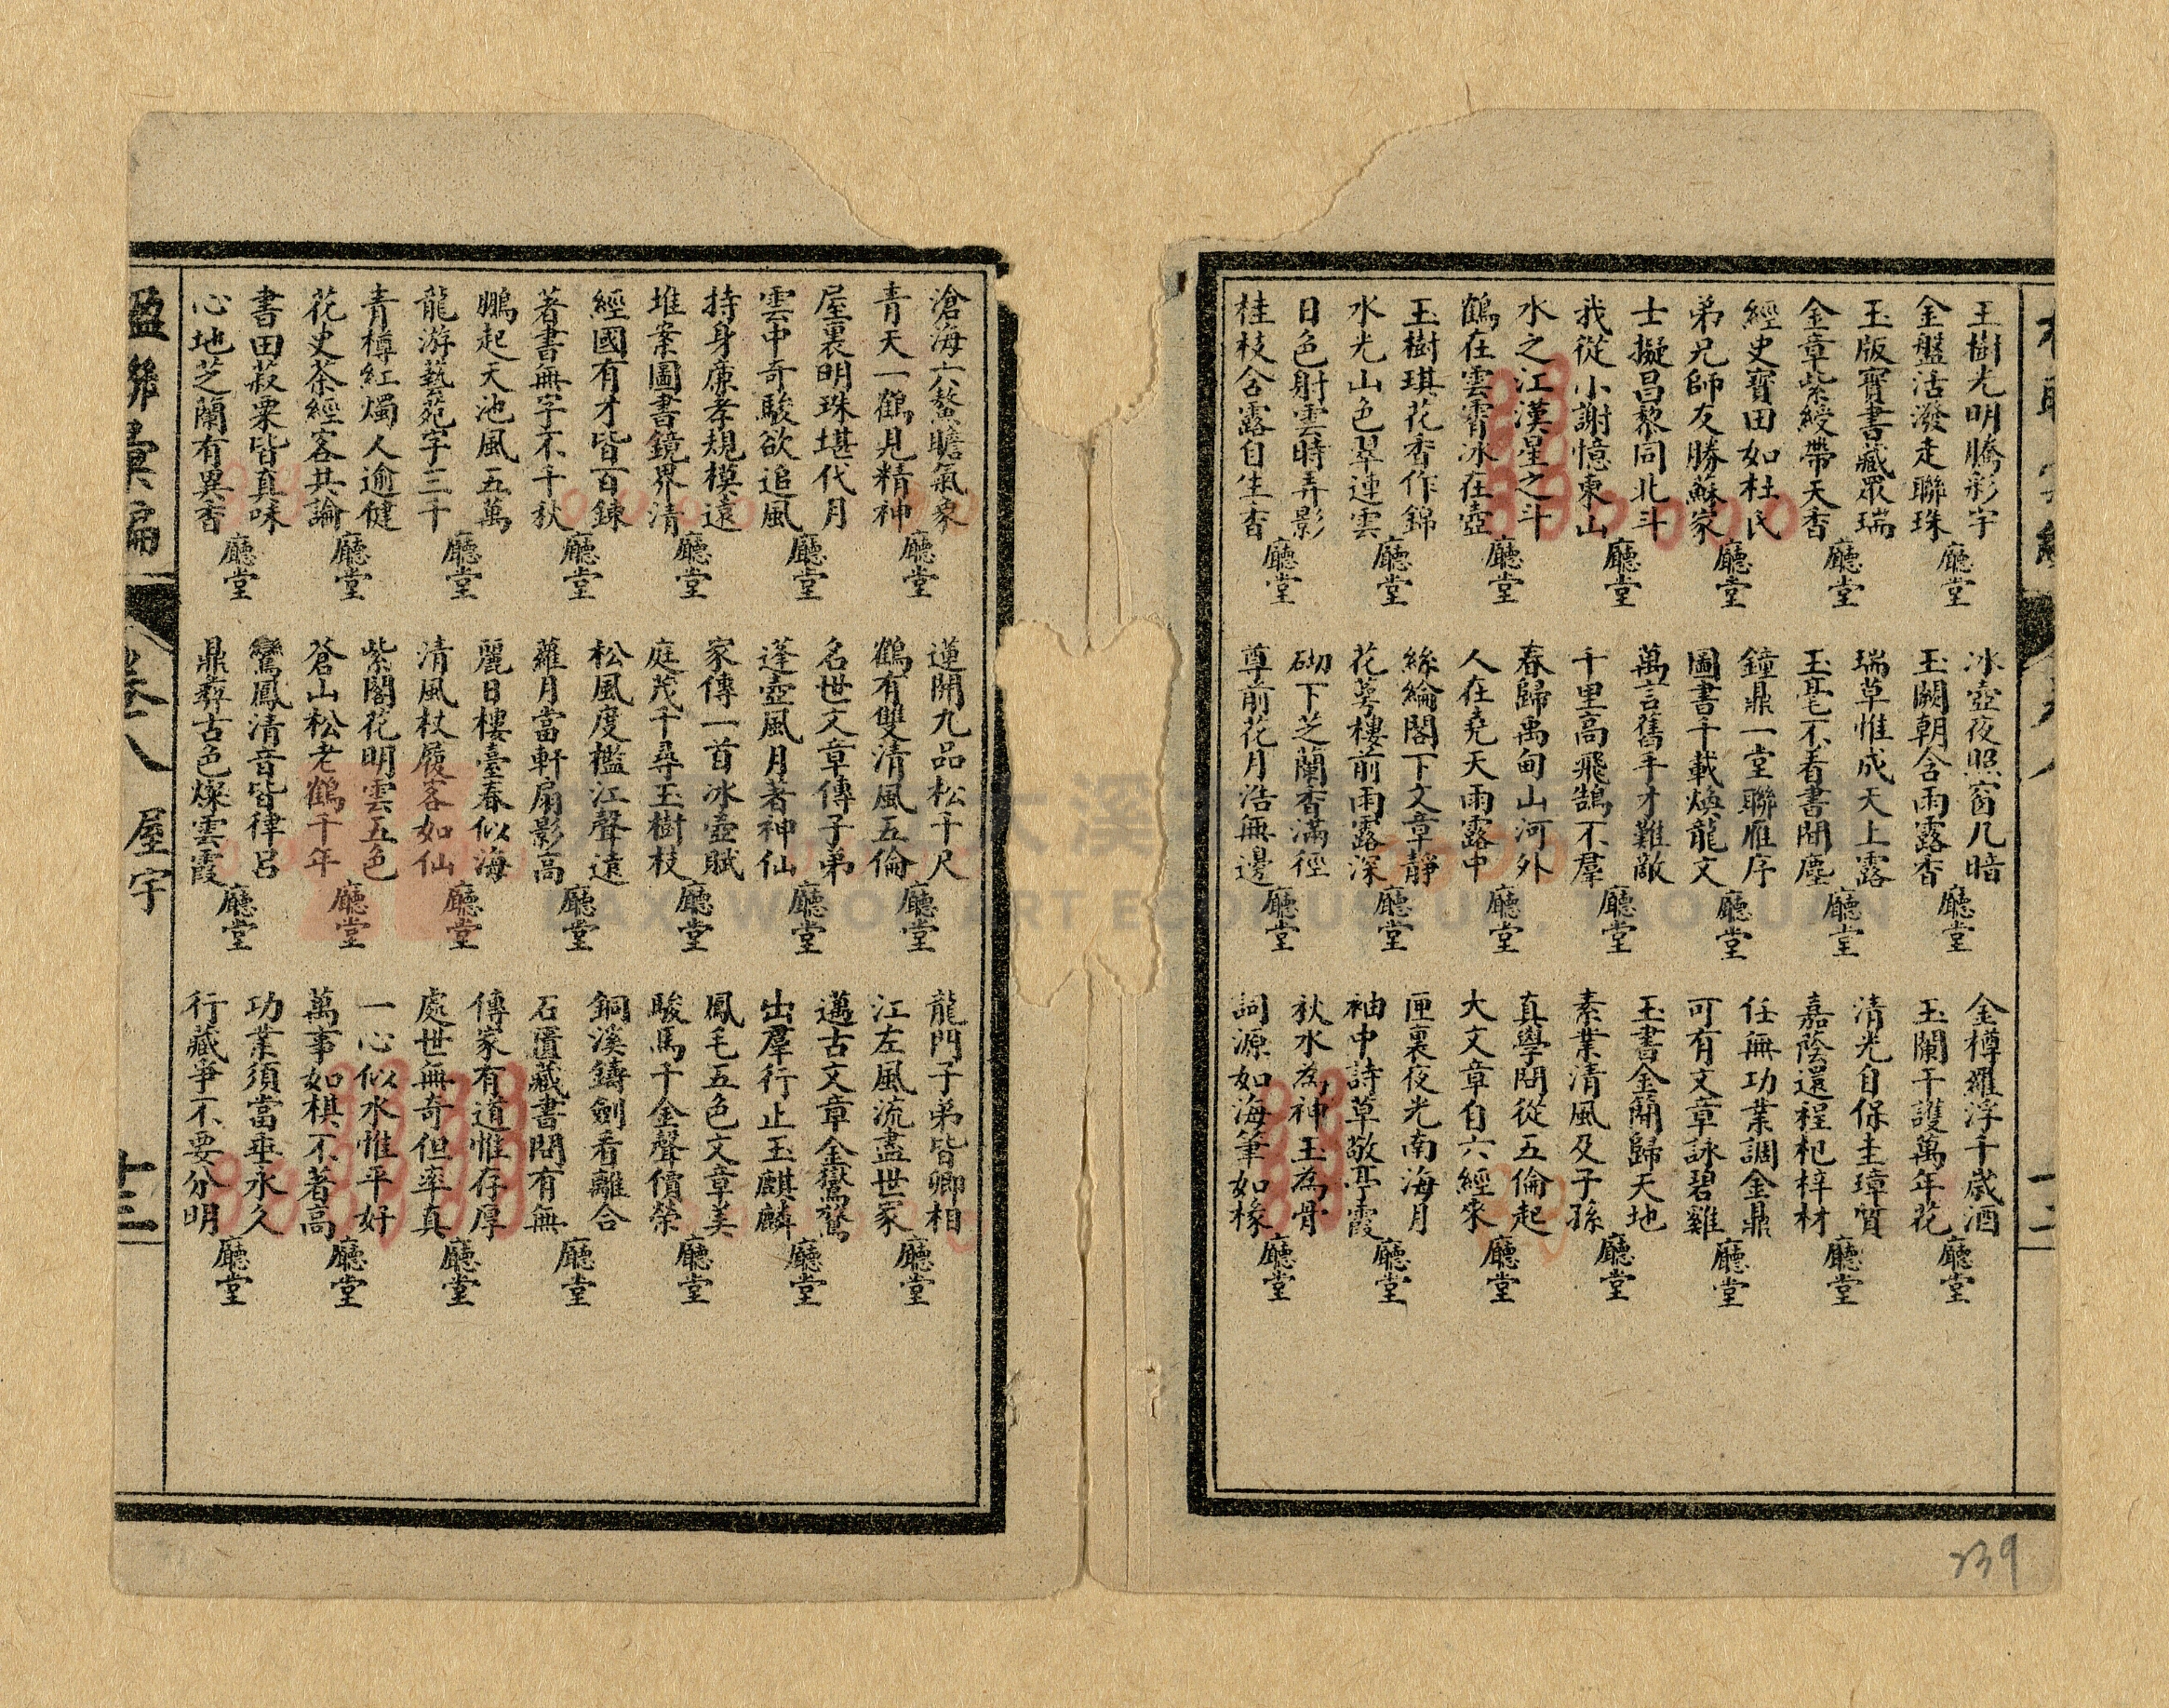 玉樹光明騰彩宇
金盤活潑走聯珠
廳堂
玉版寶書藏眾瑞
金章紫綬帶天香
廳堂
經史寶田如杜氏
弟兄師友勝蘇家
廳堂
士擬昌黎同北斗
我從小謝憶東山
廳堂
水之江漢星之斗
鶴在雲霄冰在壺
廳堂
玉樹琪花香作錦
水光山色翠連雲
廳堂
日色射雲時弄影
桂枝含露自生香
廳堂
冰壺夜照窗几暗
玉闕朝含雨露香
廳堂
瑞草惟成天上露
玉毫不着書間塵
廳堂
鐘鼎一堂聯雁序
圖書千載煥龍文
廳堂
萬言舊手才難敵
千里高飛鵠不羣
廳堂
春歸禹甸山河外
人在堯天雨露中
廳堂
絲綸閣下文章靜
花萼樓前雨露深
廳堂
砌下芝蘭香滿徑
尊前花月浩無邊
廳堂
金樽羅浮千歲酒
玉闌干護萬年花
廳堂
清光自保圭璋質
嘉蔭還程杞梓材
廳堂
任無功業調金鼎
可有文章詠碧雞
廳堂
玉書金簡歸天地
素業清風及子孫
廳堂
真學問從五倫起
大文章自六經來
廳堂
匣裏夜光南海月
袖中詩草敬亭霞
廳堂
秋水為神玉為骨
詞源如海筆如椽
廳堂
十二
239
滄海六鰲瞻氣象
青天一鶴見精神
廳堂
屋裏明珠堪代月
雲中奇駿欲追風
廳堂
持身廉孝規模遠
堆案圖書鏡界清
廳堂
經國有才皆百鍊
著書無字不千秋
廳堂
鵬起天池風五萬
龍游藝苑字三千
廳堂
青樽紅燭人逾健
花史茶經客共論
廳堂
書田菽粟皆真味
心地芝蘭有異香
廳堂
蓮開九品松千尺
鶴有雙清風五倫
廳堂
名世文章傳子弟
蓬壺風月著神仙
廳堂
家傳一首冰壺賦
庭茂千尋玉樹枝
廳堂
松風度檻江聲遠
蘿月當軒扇影高
廳堂
麗日樓臺春似海
清風杖履客如仙
廳堂
紫閣花明雲五色
蒼山松老鶴千年
廳堂
鸞鳳清音皆律呂
鼎彝古色燦雲霞
廳堂
龍門子弟皆卿相
江左風流盡世家
廳堂
邁古文章金鸑鷟
出羣行止玉麒麟
廳堂
鳳毛五色文章美
駿馬千金聲價榮
廳堂
銅溪鑄劍看離合
石匱藏書閱有無
廳堂
傳家有道惟存厚
處世無奇但率真
廳堂
一心似水惟平好
萬事如棋不著高
廳堂
功業須當垂永久
行藏爭不要分明
廳堂
楹聯彙編
卷八
屋宇
十三